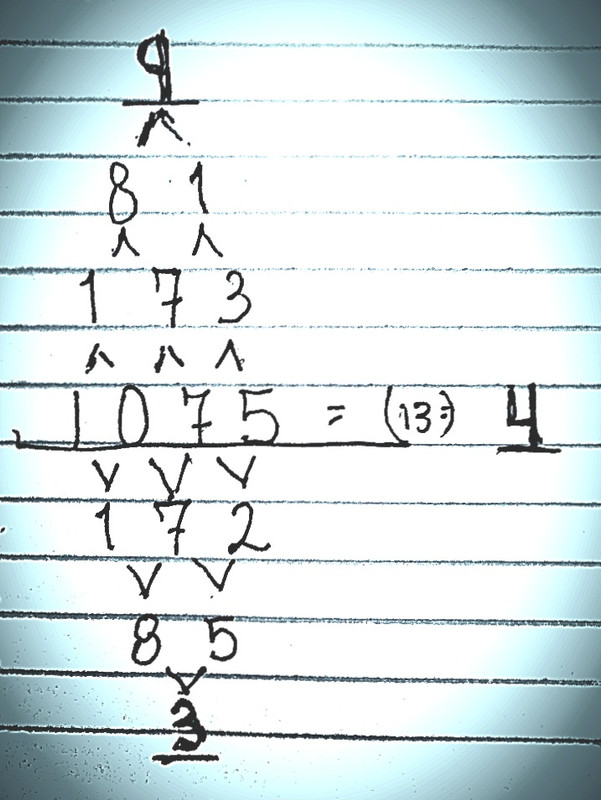 9
8 1
1 7 3
1 0 7 5 = (13=) 4
1 7 2
8 5
3